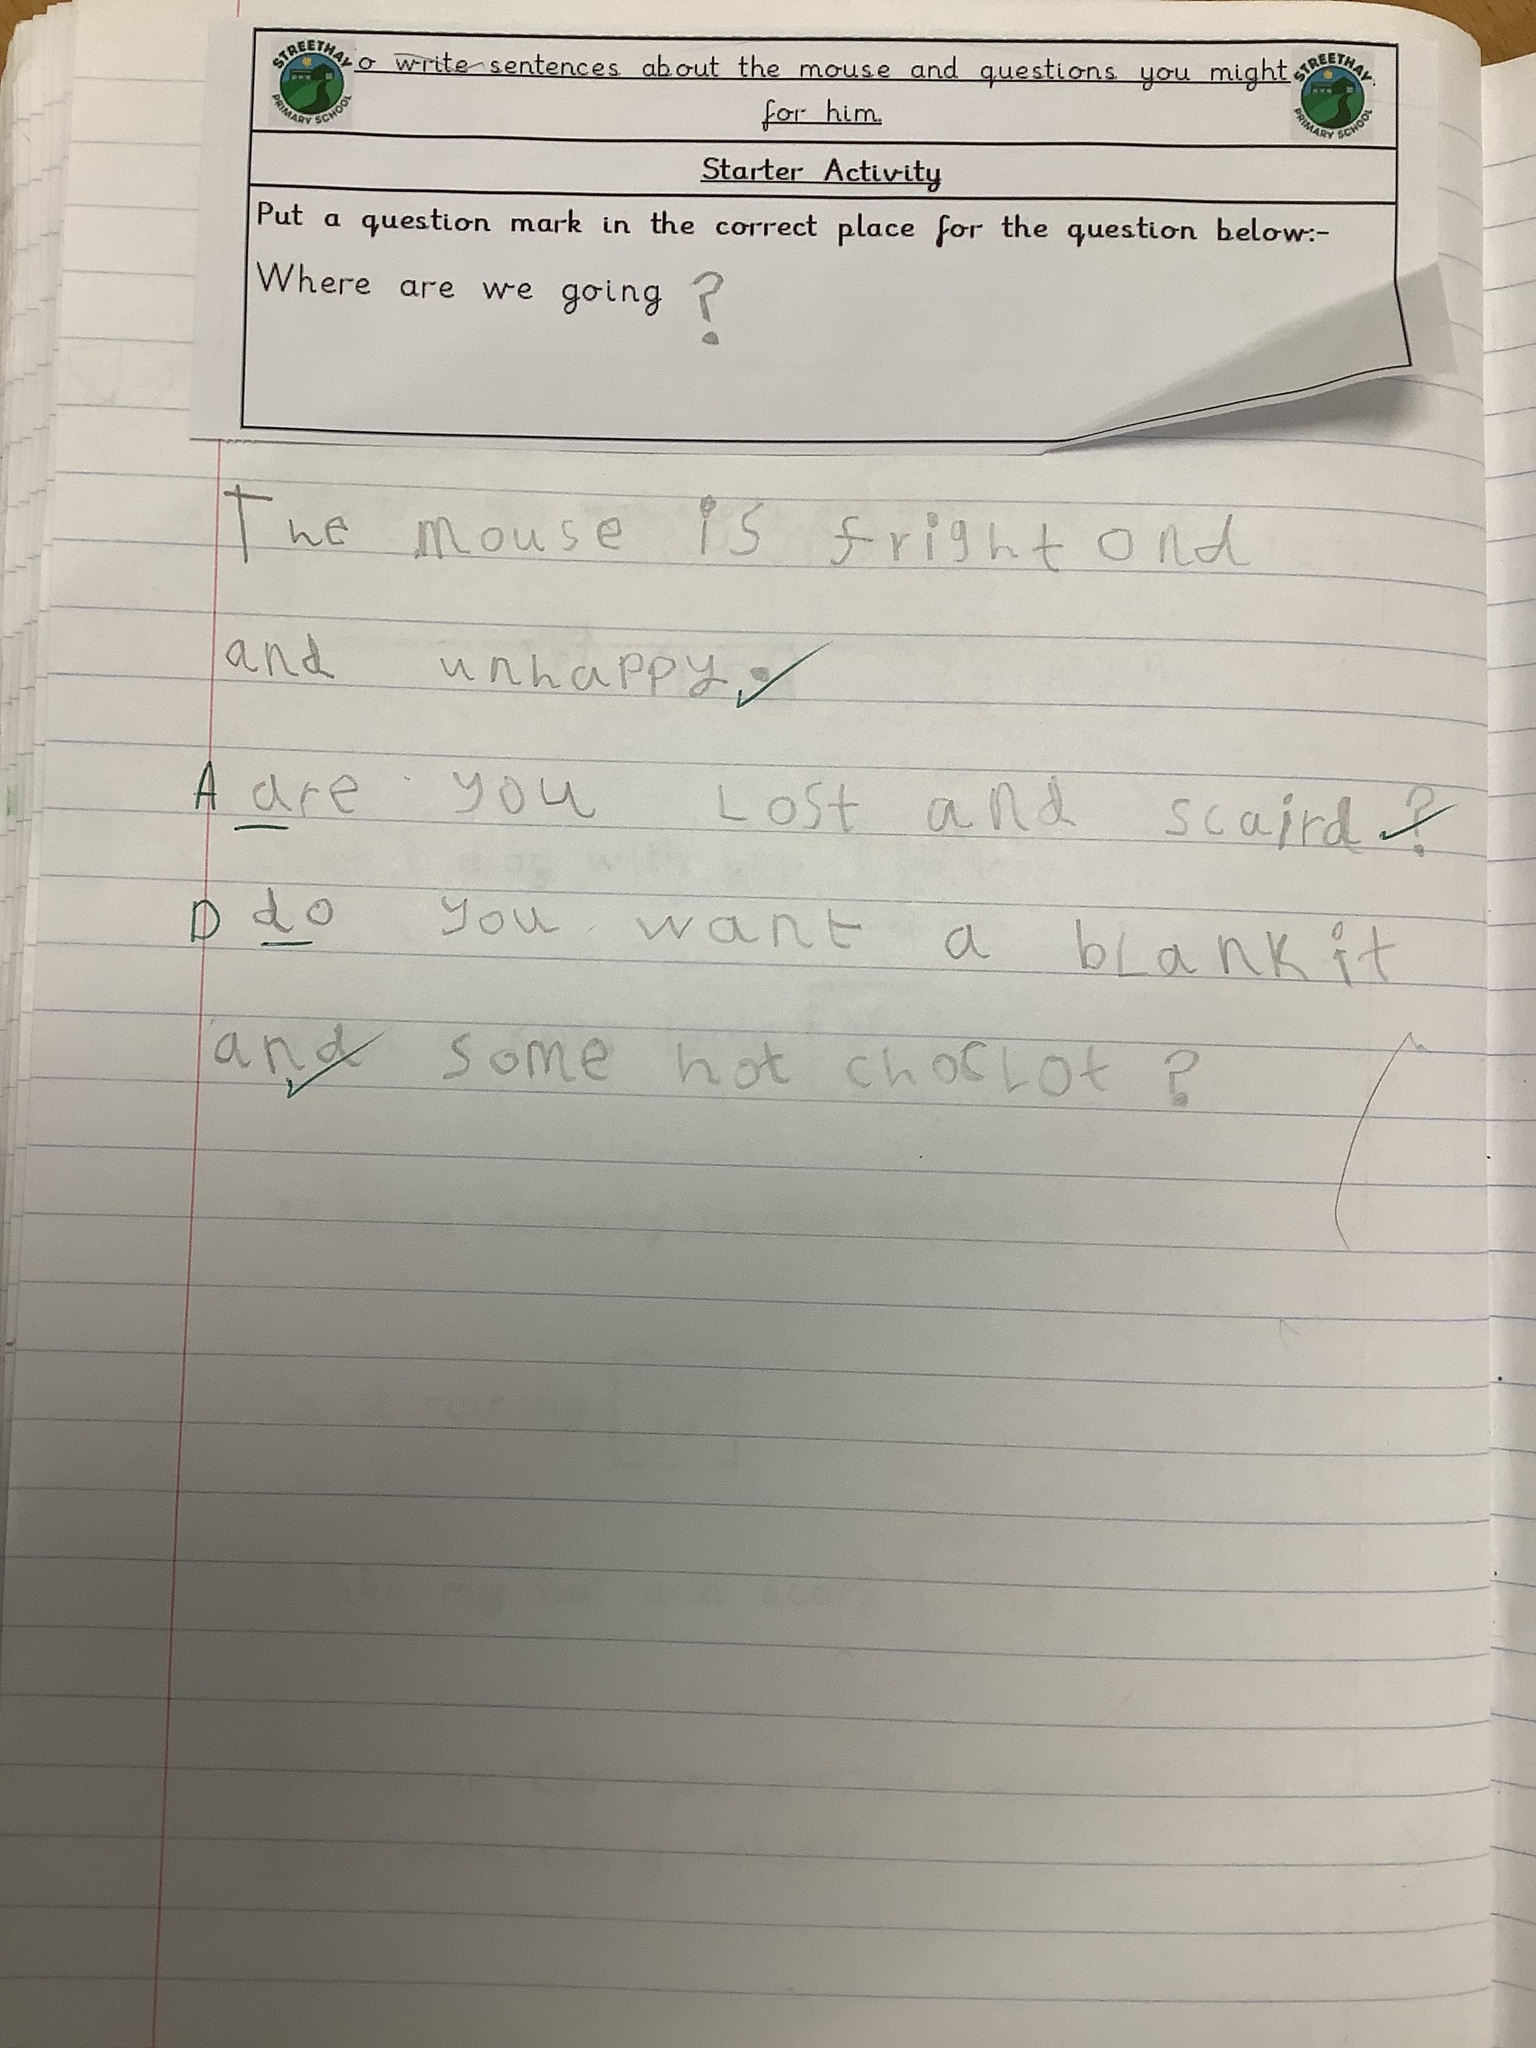 STREETHAY PRIMARY SCHOOL
o write sentences about the mouse and questions you might
for him.
STREETHAY PRIMARY SCHOOL
Starter Activity
Put a question mark in the correct place for the question below:-
Where are we going ?
The mouse is frightond
and unhappy.
A are you Lost and scaird?
D do you want a bLankit
and some hot chocLot?